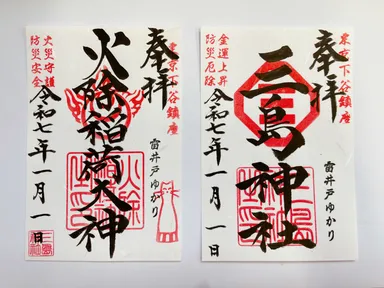 奉拝
東京下谷鎮座
火除稲荷大神
雷井戸ゆかり
火災守護
防災安全
令和七年一月一日
奉拝
東京下谷鎮座
三島神社
雷井戸ゆかり
金運上昇
防災厄除
令和七年一月一日